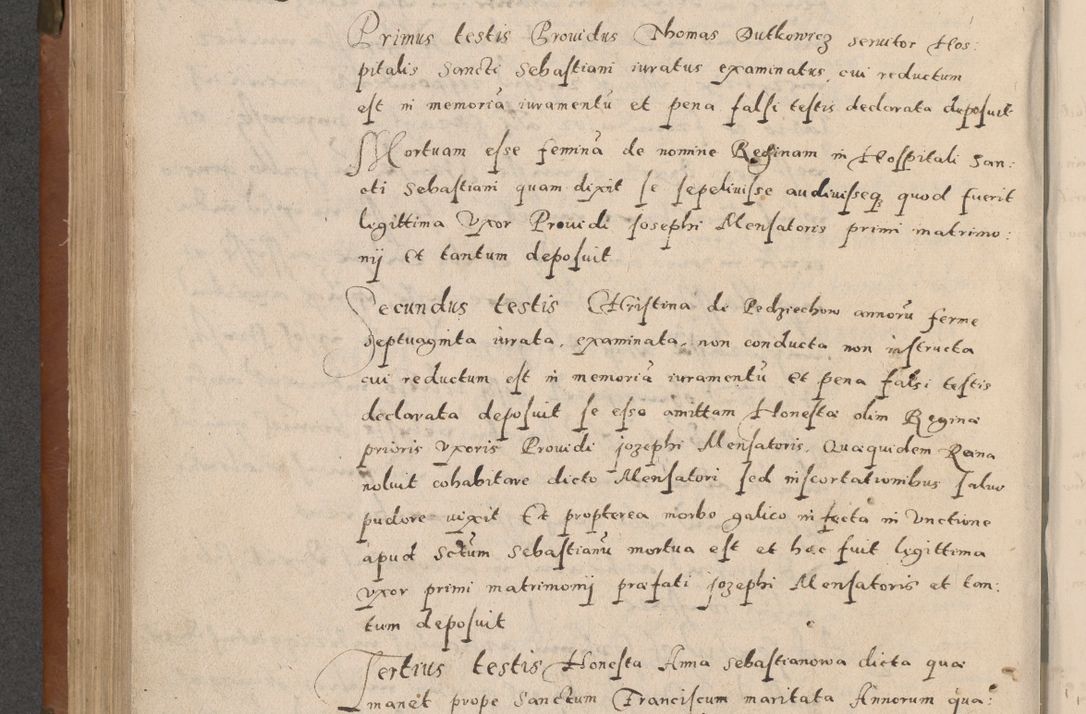 Primus testis Providus Thomas Dutkowicz servitor Hos:
pitalis Sancti Sebastiani iuratus examinatus, cui reductum
est in memoriā iuramentū et pena falsi testis declarata deposuit
Mortuam esse feminā de nomine Reginam in Hospitali San:
cti Sebastiani quam dixit se sepelivisse audivisseq quod fuerit
legittima Uxor Providi Josephi Mensatoris primi matrimo:
nij Et tantum deposuit
Secundus testis Christina de Pedziechow annorū ferme
septuaginta iurata, examinata, non conducta non instructa
cui reductum est in memoriā iuramentū et pena falsi testis
declarata deposuit se esse amittam Honestæ olim Reginæ
prioris Uxoris Providi jozephi Mensatoris, Quæquidem Reina
noluit cohabitare dicto Mensatori sed in scortationibus salvo
pudore vixit Et propterea morbo galico infecta in Unctione
apud Sctum Sebastianū mortua est et hæc fuit legittima
uxor primi matrimonij præfati jozephi Mensatoris et tan:
tum deposuit
Tertius testis Honesta Anna Sebastianowa dicta quæ
manet prope Sanctum Franciscum maritata Annorum qua: